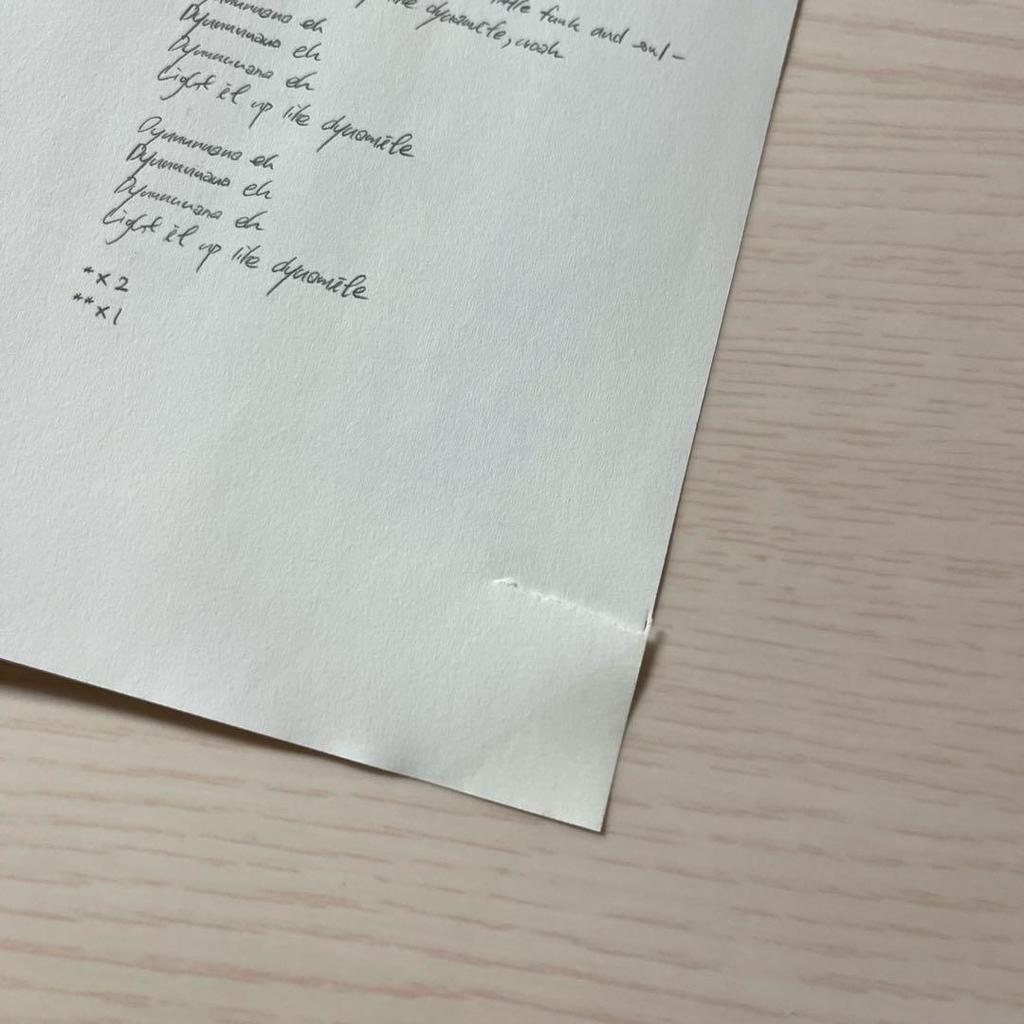 ttle funk and soul-
like dynamite, woah
Dynnnnnana eh
Dynnnnnana eh
Dynnnnnana eh
Light it up like dynamite
Dynnnnnana eh
Dynnnnnana eh
Dynnnnnana eh
Light it up like dynamite
*x2
**x1